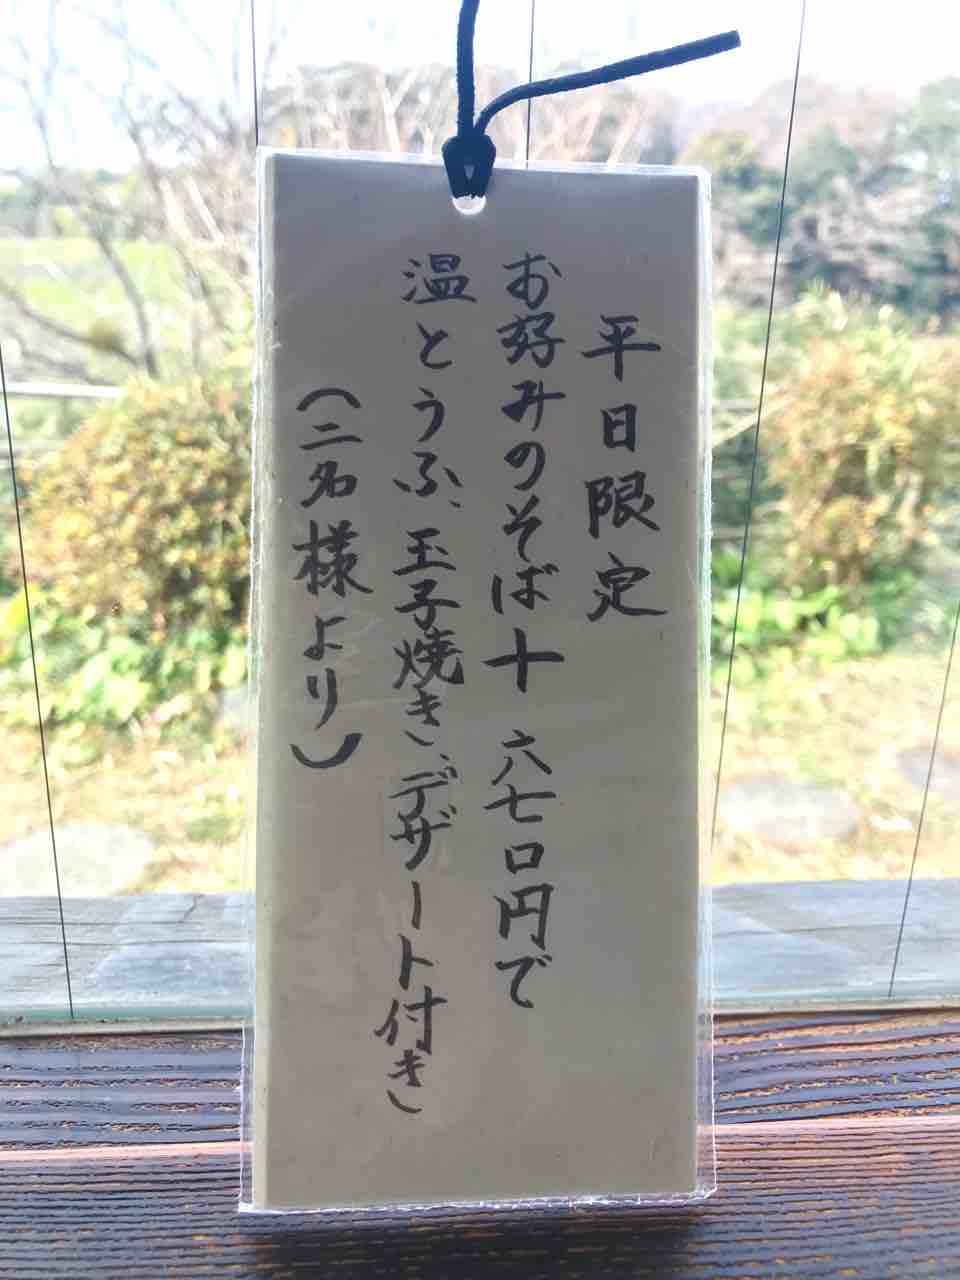 平日限定
お好みのそば十 六七〇円で
温とうふ、玉子焼き、デザート付き
（二名様より）